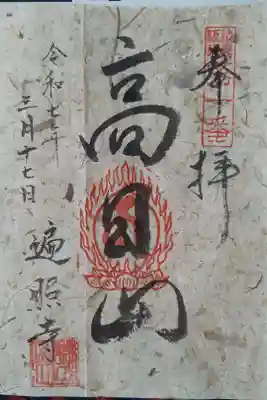 奉拝
高日山
令和七年
三月十七日
遍照寺